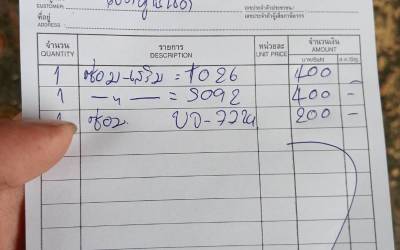 CUSTOMER:
ที่อยู่
ADDRESS:
เลขประจำตัวประชาชน/
เลขประจำตัวผู้เสียภาษีอากร
จำนวน รายการ หน่วยละ จำนวนเงิน
QUANTITY DESCRIPTION UNIT PRICE AMOUNT
บาท/Baht
1 ซ่อม-เสริม = 1026 400
1 —〃— = 3092 400 -
1 ซ่อม 200 -